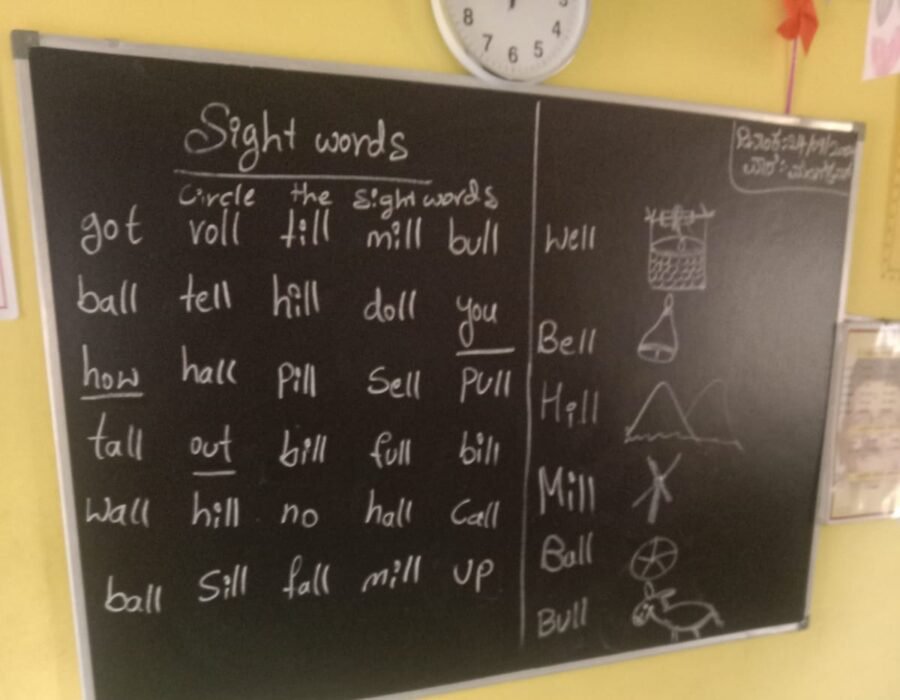 8 7 6 5 4 3
Sight words
Circle the sight words
got roll till mill bull
ball tell hill doll you
how hall pill Sell PUll
tall out bill full bill
Wall hill no hall Call
ball Sill fall mill UP
Well
Bell
Hill
Mill
Ball
Bull